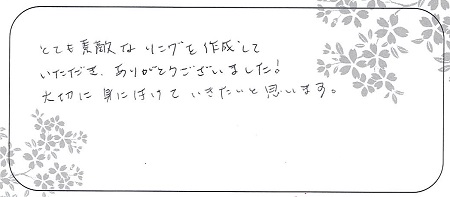 とても素敵なリングを作成して
いただき、ありがとうございました!
大切に身に付けていきたいと思います。